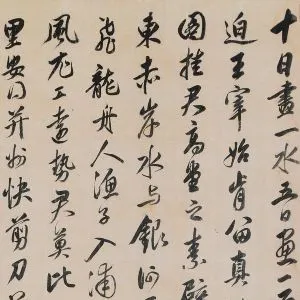 十日畫一水五日畫一
迫王宰始肯留真
圖挂君高堂之素壁
東赤岸水与銀河
飛龍舟人漁子入浦
風尤工遠勢君莫比
里安得并州快剪刀